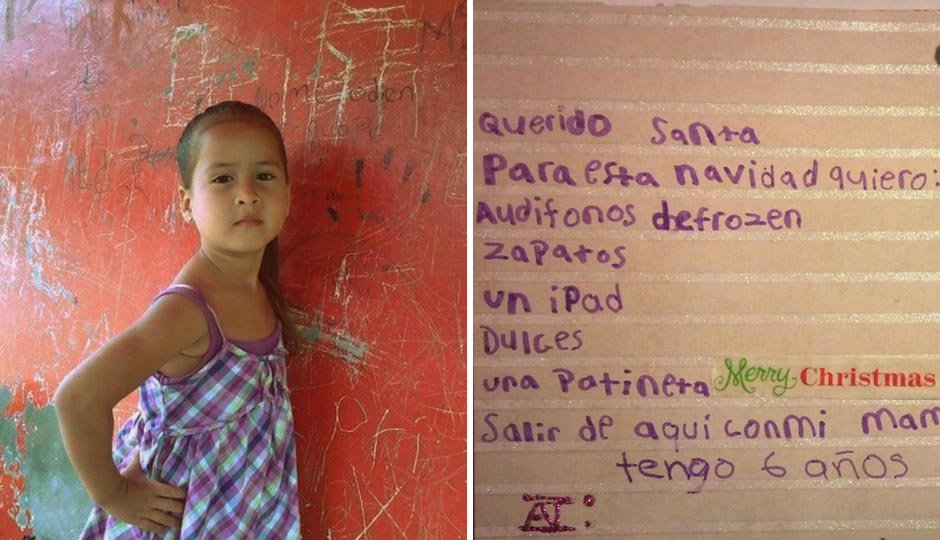 No me joden
Querido Santa
Para esta navidad quiero:
Audifonos de frozen
zapatos
un iPad
Dulces
una Patineta Merry Christmas
Salir de aquí con mi mam
tengo 6 años
AI: